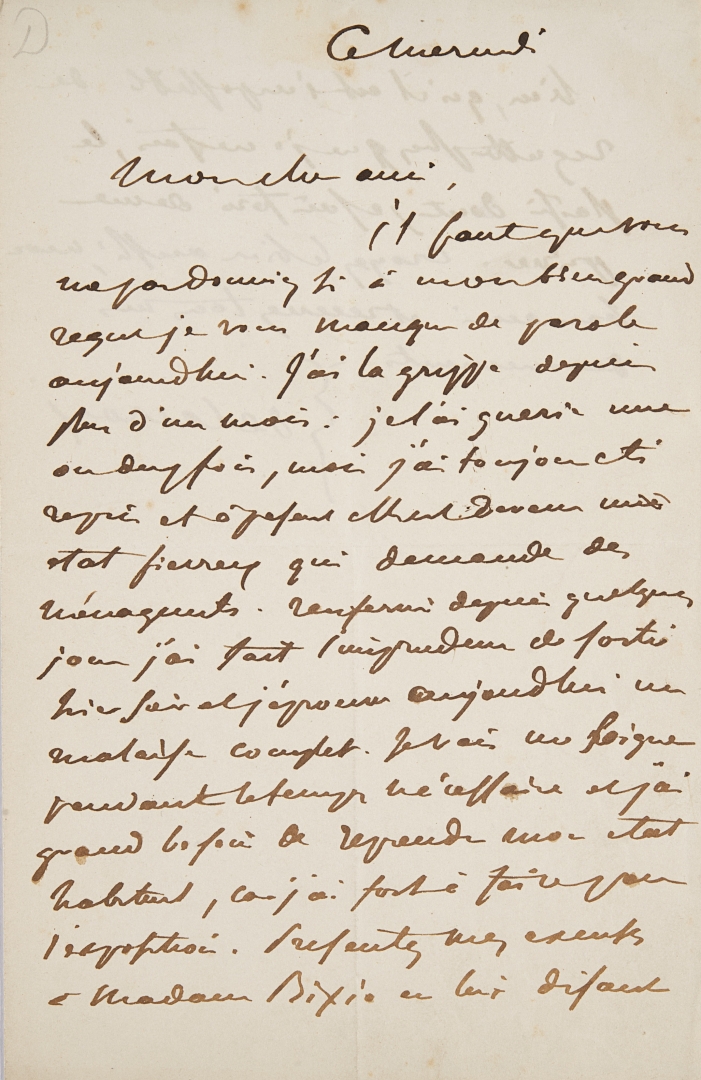 D
Ce mercredi
Mon cher ami,
il faut que vous
me pardonniez si à mon bien grand
regret je vous manque de parole
aujourd'hui. J'ai la grippe depuis
plus d'un mois : je l'ai guérie une
ou deux fois, mais j'ai toujours été
repris et à présent c'est devenu un
état fiévreux qui demande des
ménagements. Renfermé depuis quelques
jours j'ai fait l'imprudence de sortir
hier soir et j'éprouve aujourd'hui un
malaise complet. Je vais me soigner
pendant le temps nécessaire et j'ai
grand besoin de reprendre mon état
habituel, car j'ai fort à faire pour
l'exposition. Présentez mes excuses
à Madame Bixio en lui disant